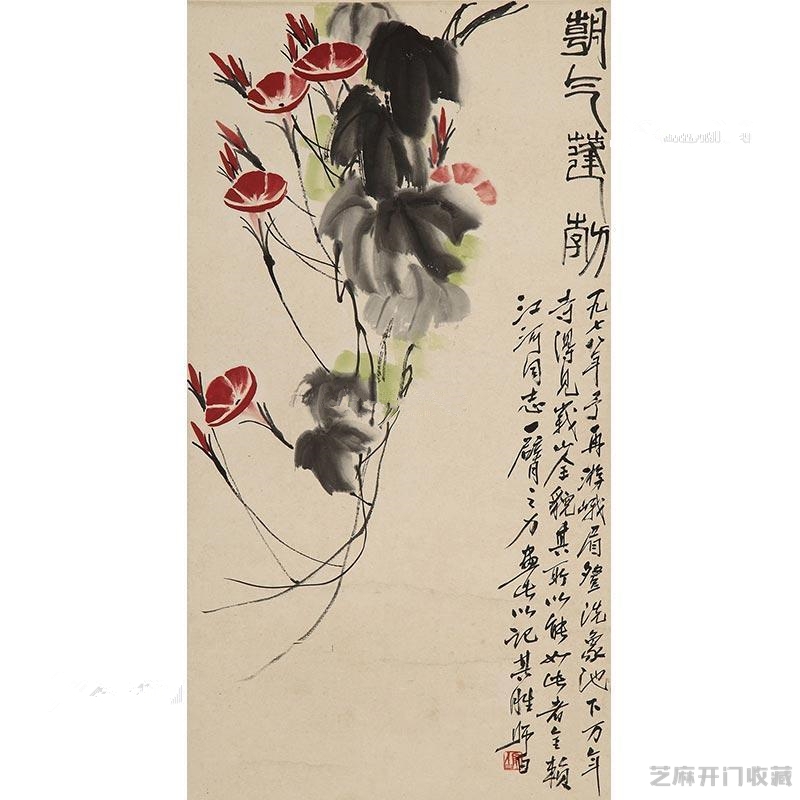 朝气蓬勃
一九七八年予再游峨眉登洗象池下万年
寺得见峨山全貌其所以能如此者全赖
江河同志一臂之力画此以记其胜师白
芝麻开门收藏